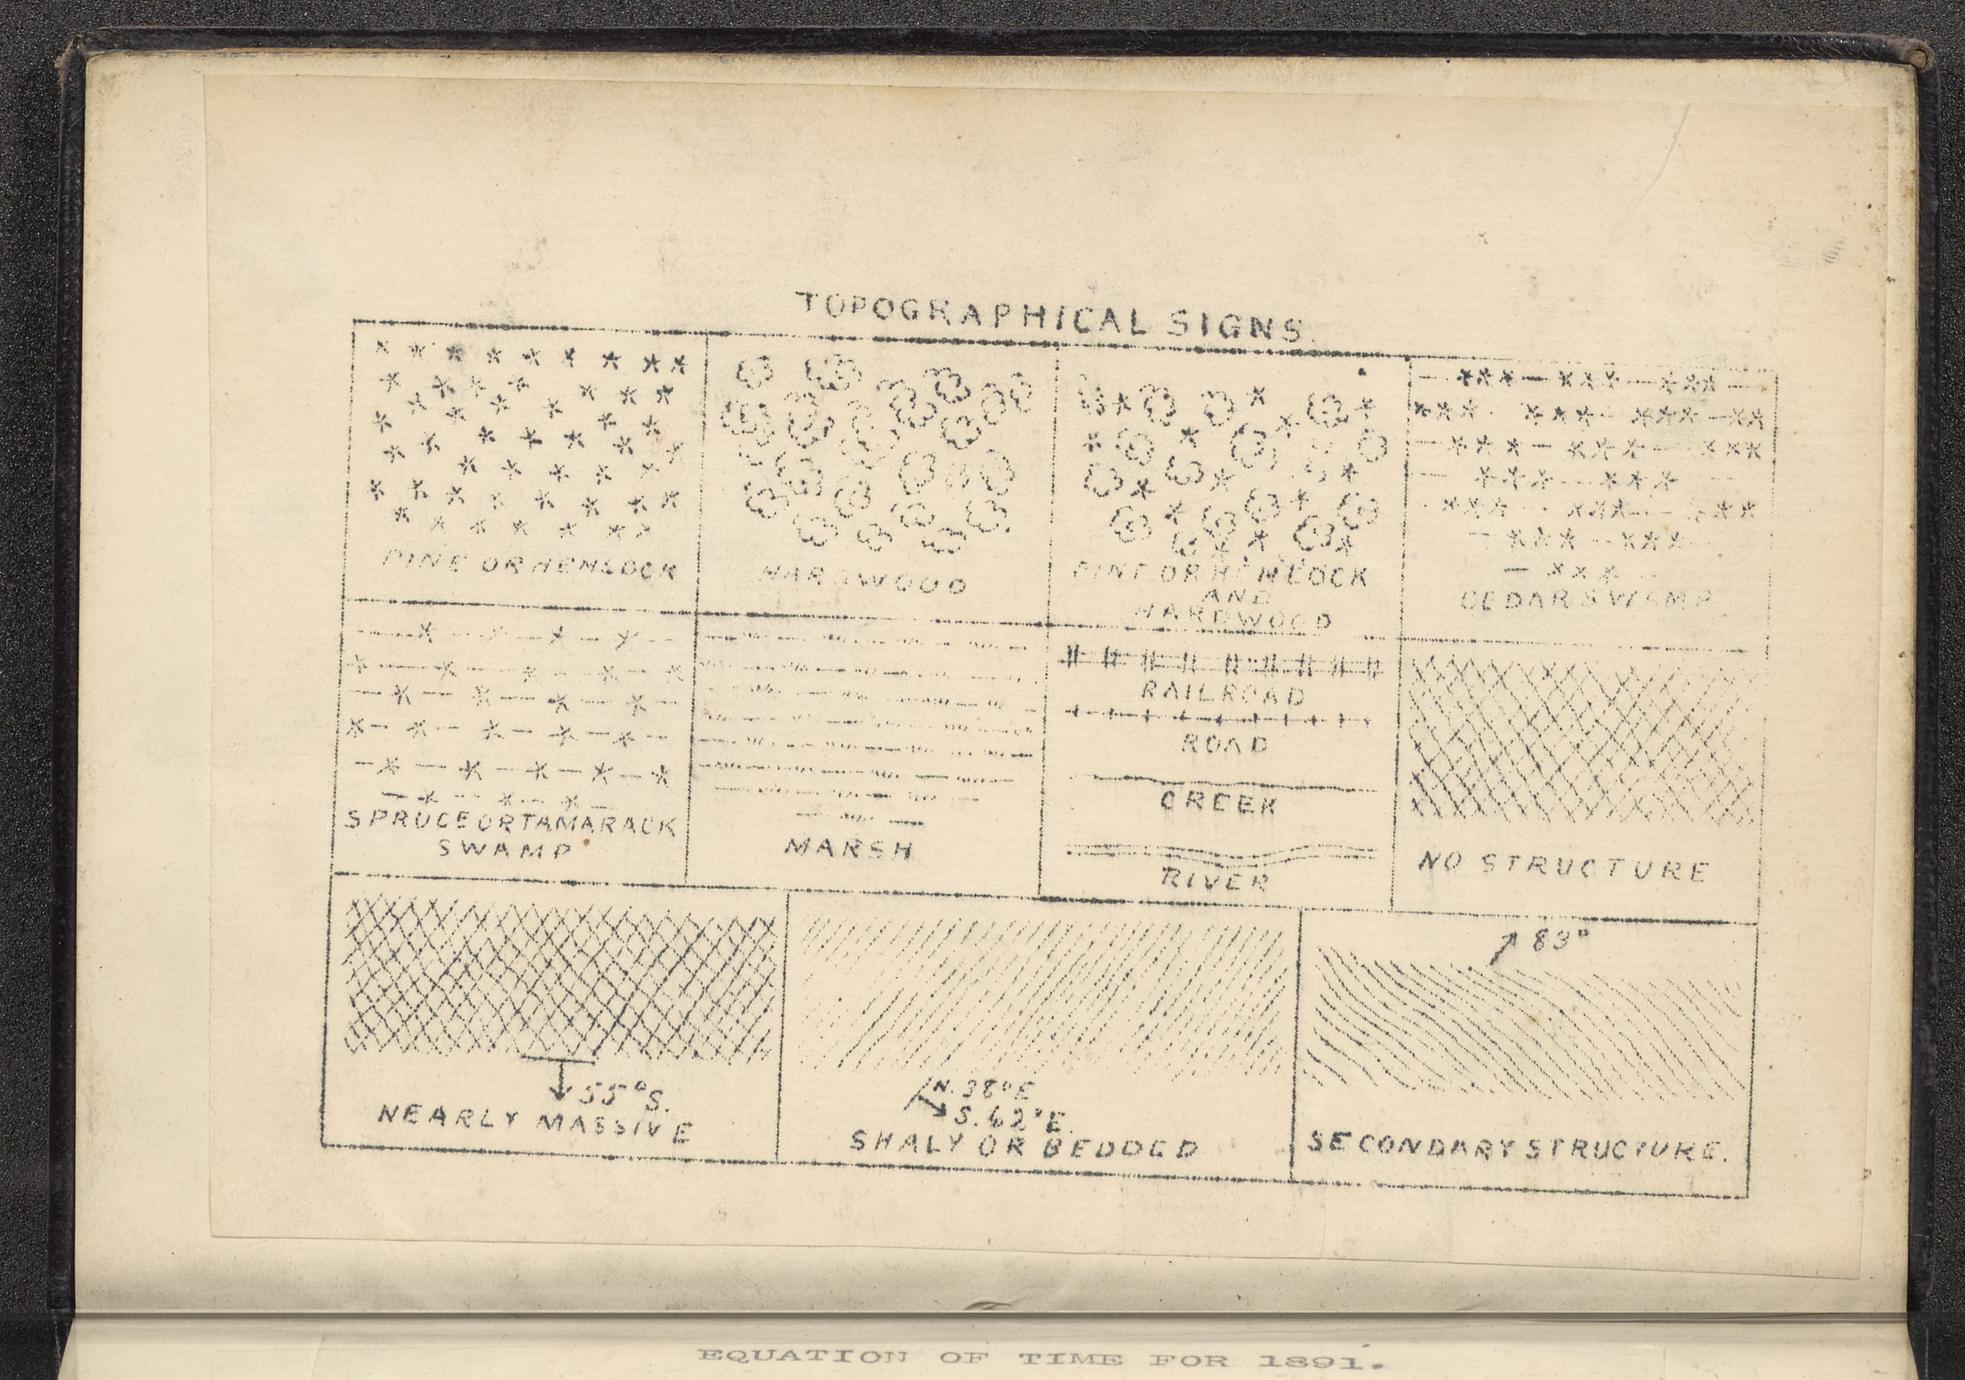 TOPOGRAPHICAL SIGNS.
PINE OR HEMLOCK
HARDWOOD
PINE OR HEMLOCK
AND
HARDWOOD
CEDAR SWAMP
SPRUCE OR TAMARACK
SWAMP
MARSH
RAILROAD
ROAD
CREEK
RIVER
NO STRUCTURE
55° S.
NEARLY MASSIVE
N. 38° E
S. 62° E.
SHALY OR BEDDED
83°
SECONDARY STRUCTURE.
EQUATION OF TIME FOR 1891.